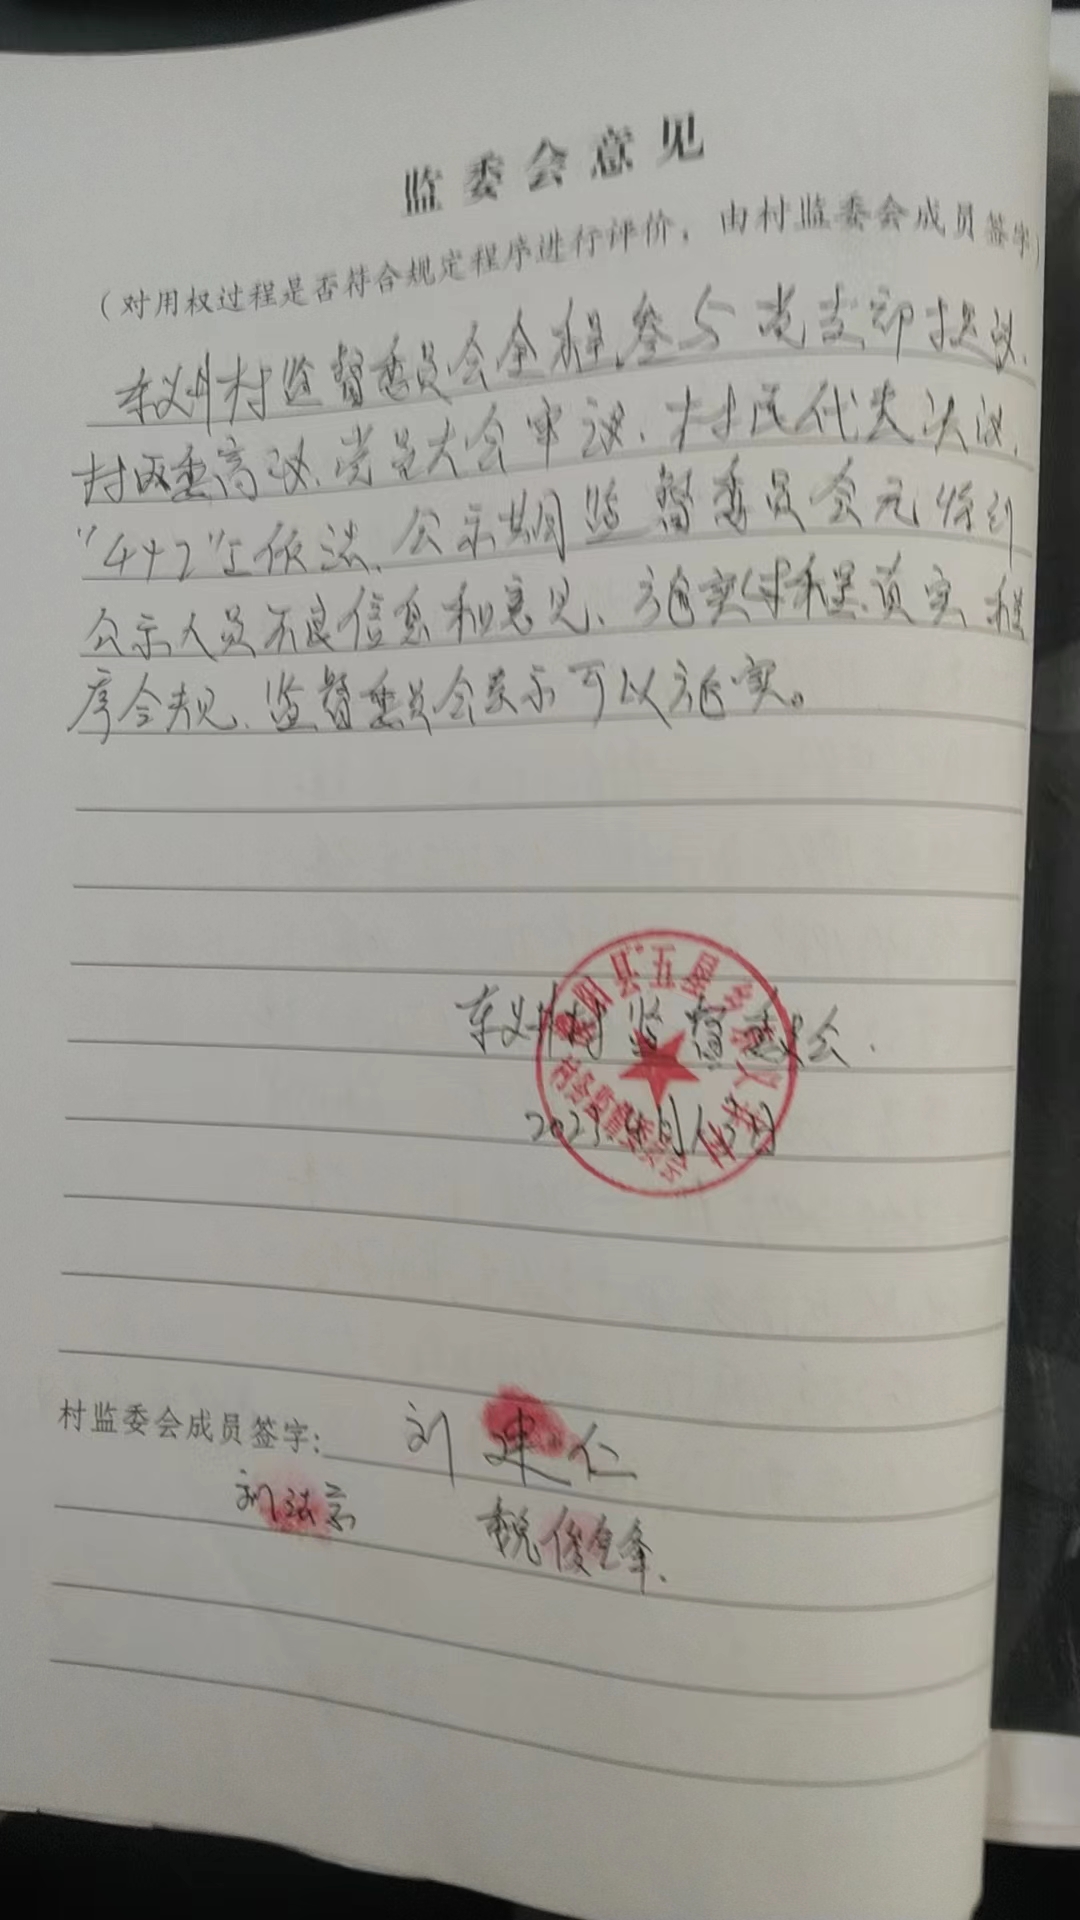 监委会意见
（对用权过程是否符合规定程序进行评价，由村监委会成员签字）
东义州村监督委员会全程参与党支部提议、
村两委商议、党员大会审议、村民代表决议、
"442"工作法、公示期监督委员会无收到
公示人员不良信息和意见、施实过程真实、程
序合规、监督委员会表示可以施实。
阳县五星乡
东义州村监督委员会.
村务监督委员会
2023年
村监委会成员签字：刘建仁
刘法京 魏俊峰.